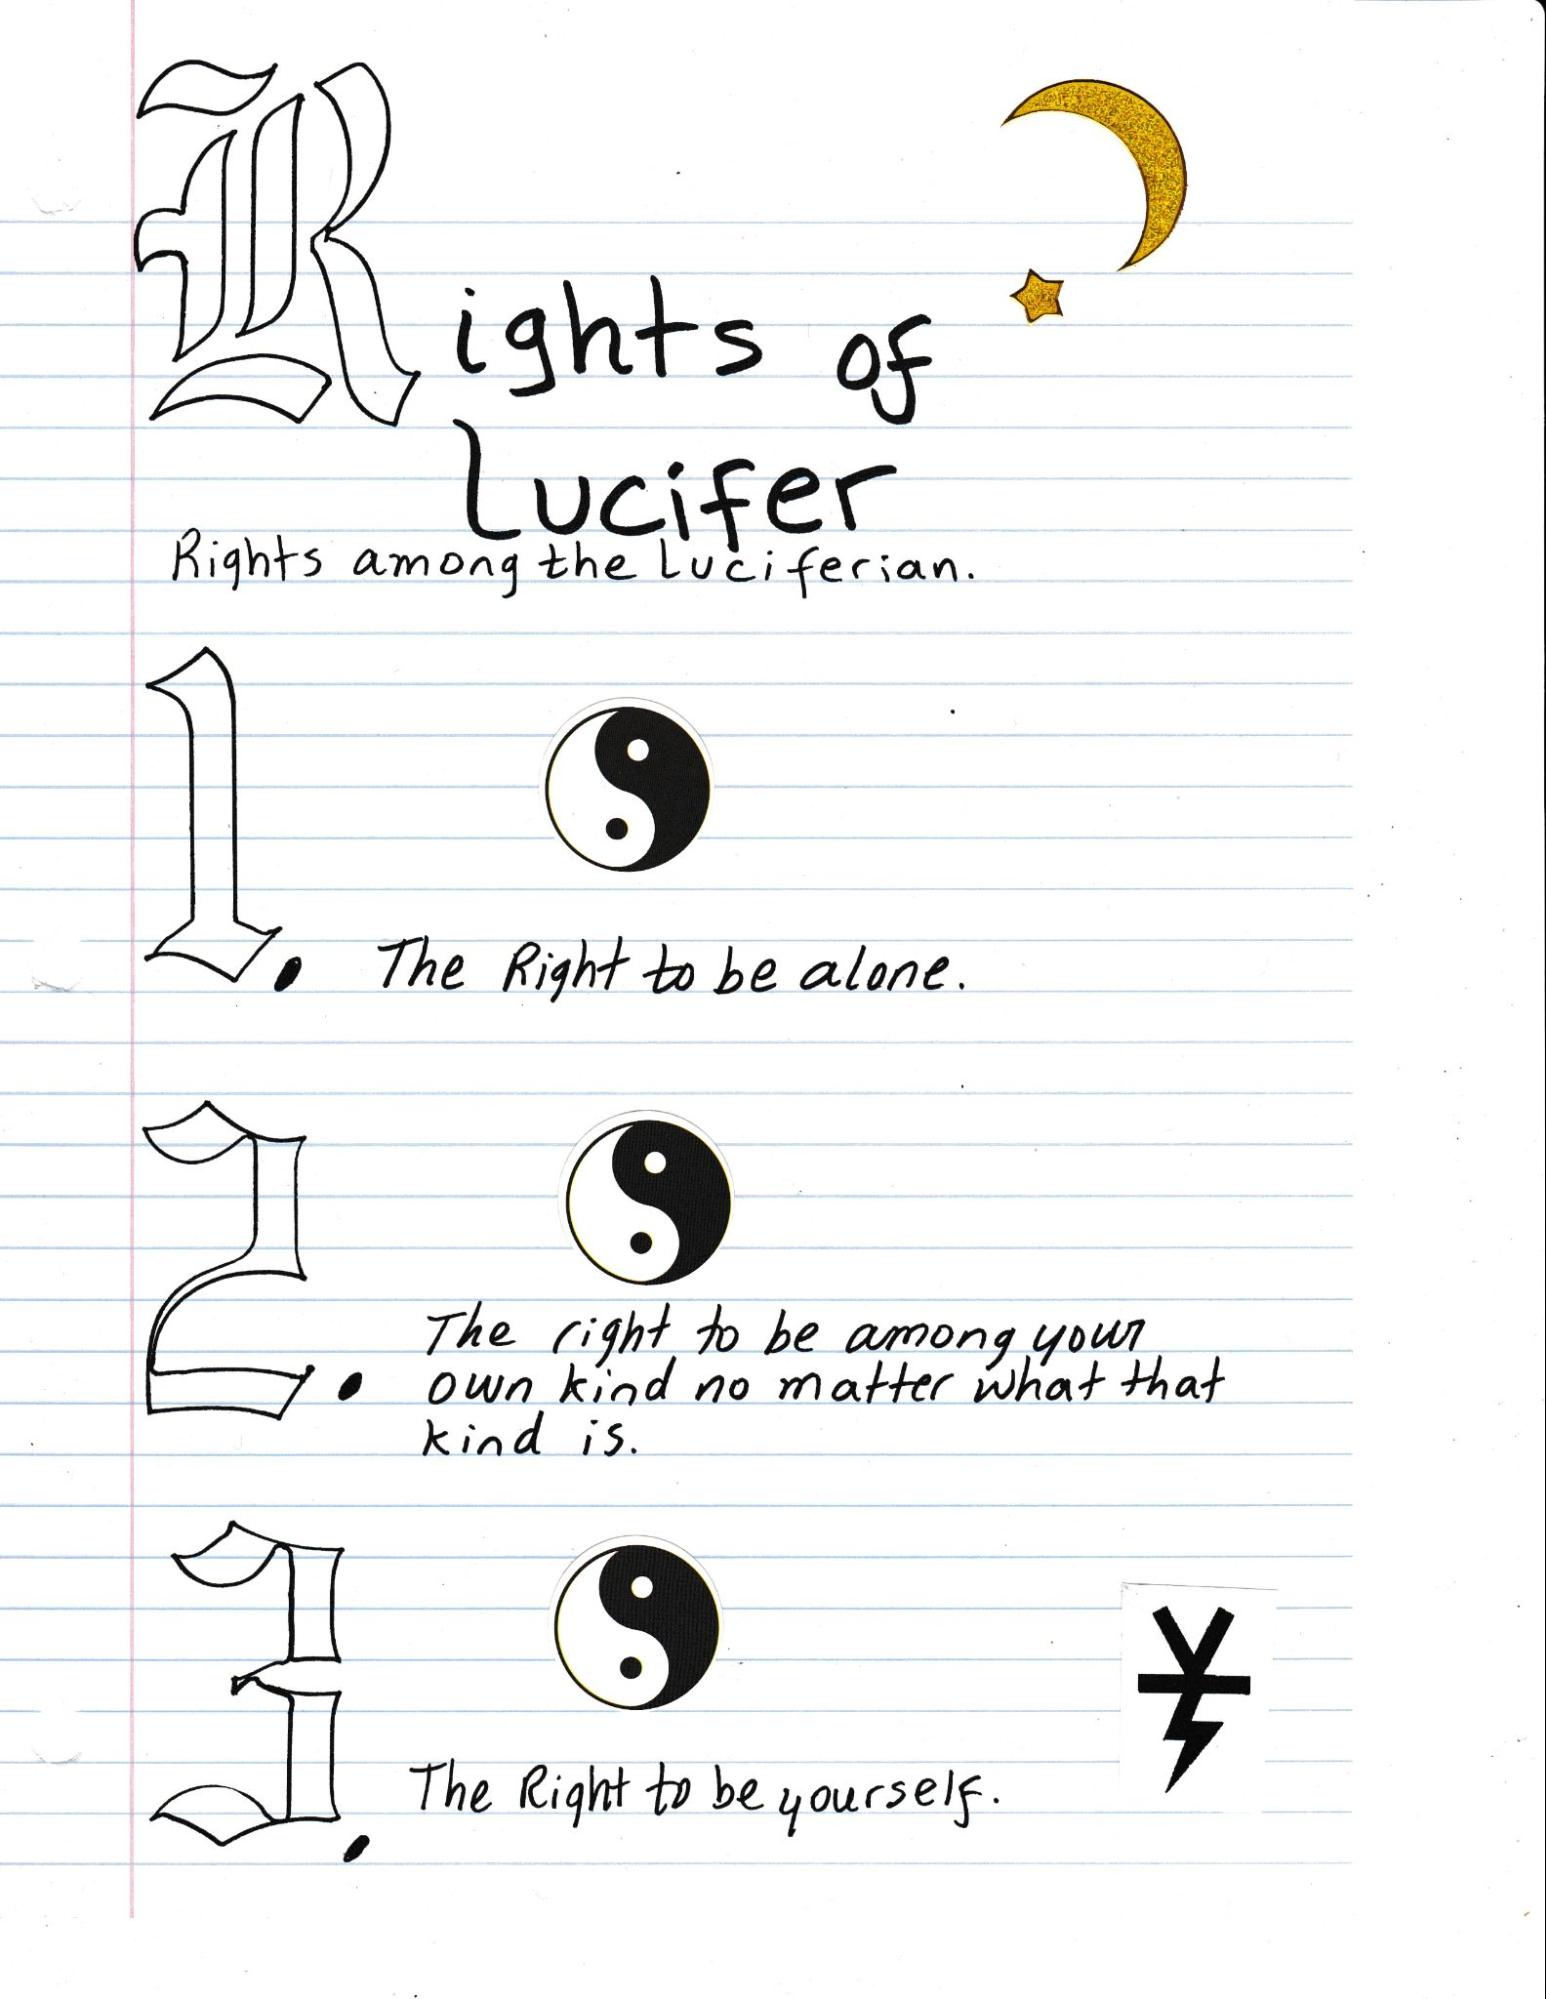 Rights of
Lucifer
Rights among the Luciferian.
1. The Right to be alone.
2. The right to be among your
own kind no matter what that
kind is.
3. The Right to be yourself.